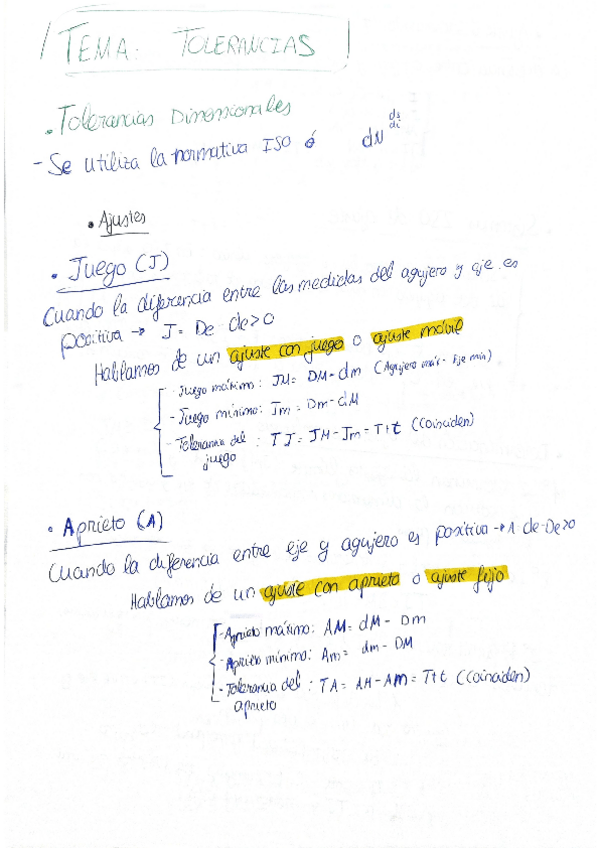 TEMA: TOLERANCIAS
• Tolerancias Dimensionales
- Se utiliza la normativa ISO ó dN ds di
• Ajustes
• Juego (J)
Cuando la diferencia entre las medidas del agujero y eje es
positiva → J = De - de > 0
Hablamos de un ajuste con juego o ajuste móvil
- Juego máximo: JM = DM - dm (Agujero máx - Eje mín)
- Juego mínimo: Jm = Dm - dM
- Tolerancia del juego : TJ = JM - Jm = T+t (Coinciden)
• Aprieto (A)
Cuando la diferencia entre eje y agujero es positiva → A = de - De > 0
Hablamos de un ajuste con aprieto o ajuste fijo
- Aprieto máximo: AM = dM - Dm
- Aprieto mínimo: Am = dm - DM
- Tolerancia del aprieto : TA = AM - Am = T+t (Coinciden)